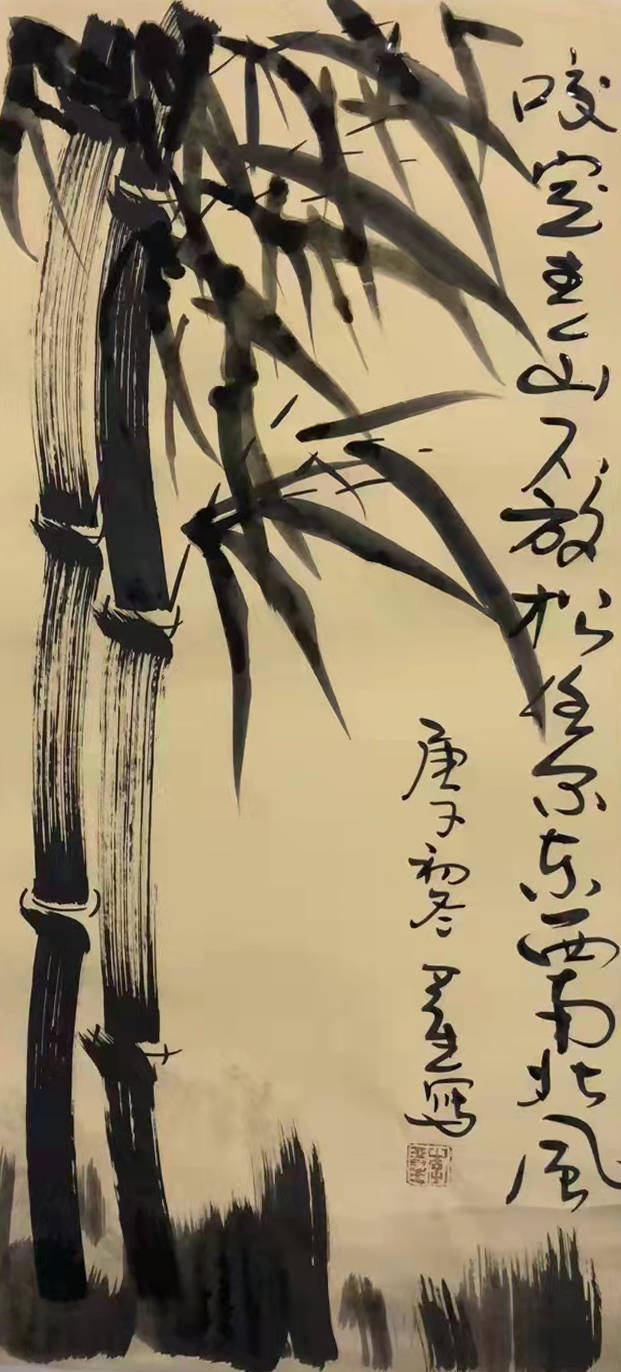 咬定青山不放松任尔东西南北風
庚子初冬寫